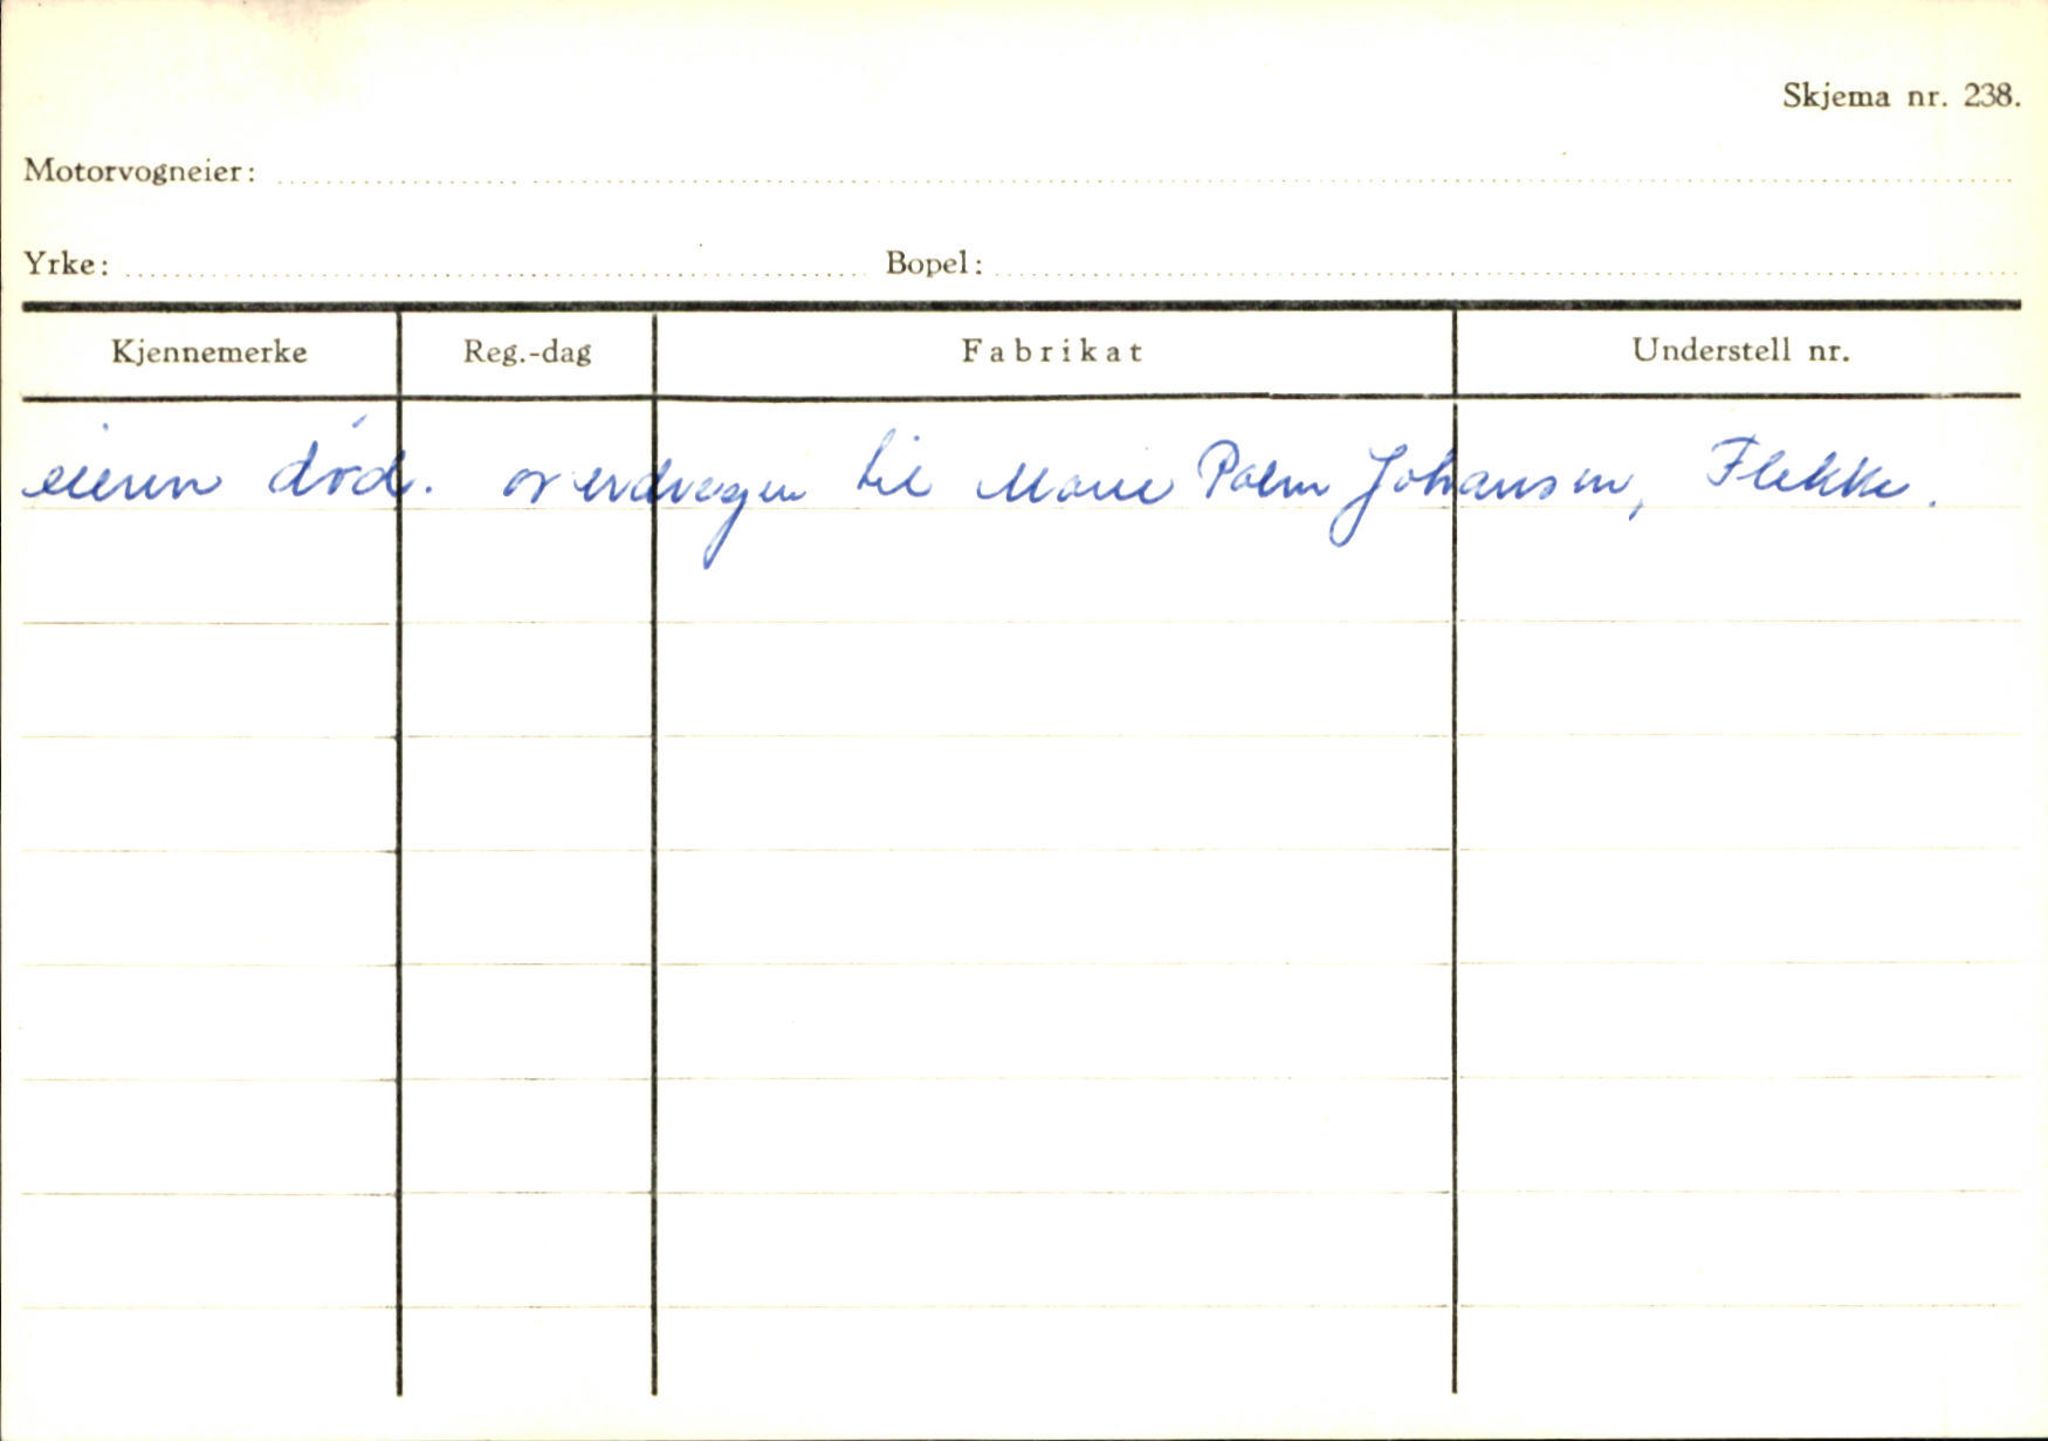 Skjema nr. 238.
Motorvogneier:
Yrke: Bopel:
Kjennemerke Reg.-dag Fabrikat Understell nr.
eieren død. overdragen til Marie Palm Johansen, Flekke.